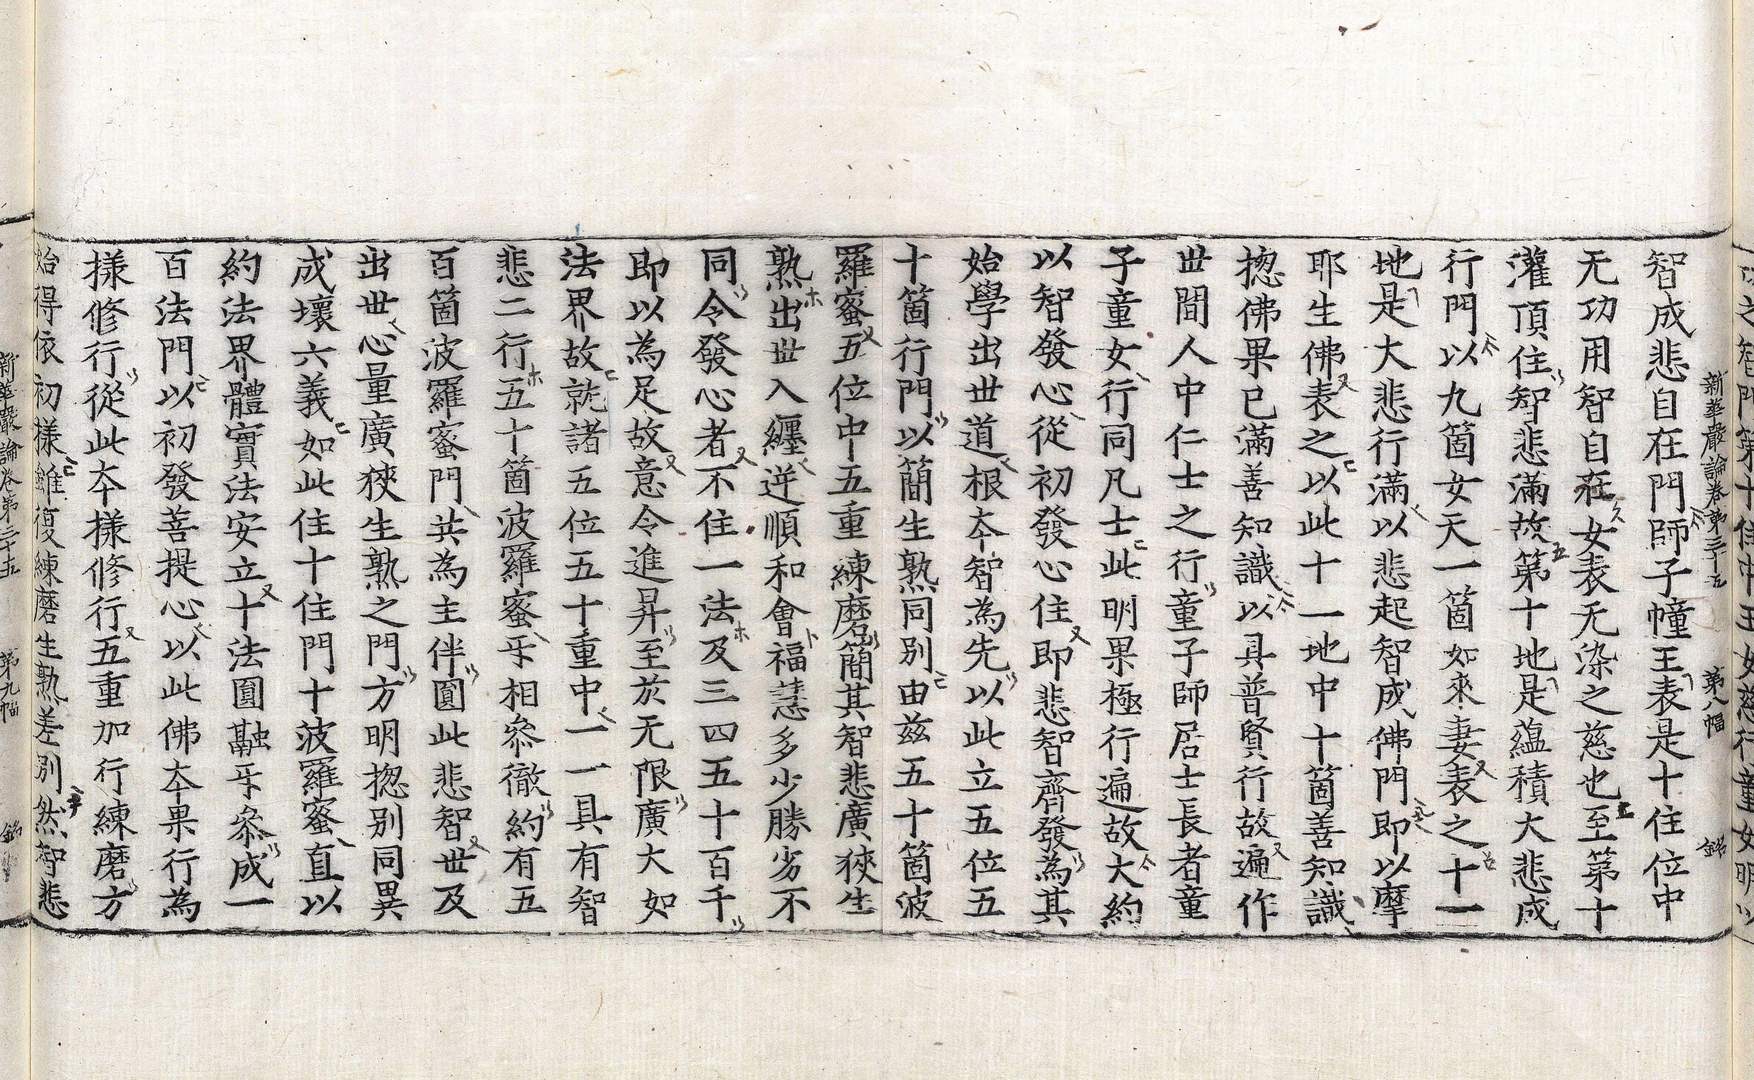 新華嚴論卷第三十五 第八幅 銘
智成悲自在門師子幢王表是十住位中
无功用智自在女表无染之慈也至第十
灌頂住智悲滿故第十地是蘊積大悲成
行門以九箇女天一箇如來妻表之十一
地是大悲行滿以悲起智成佛門即以摩
耶生佛表之以此十一地中十箇善知識
揔佛果已滿善知識以具普賢行故遍作
世間人中仁士之行童子師居士長者童
子童女行同凡士此明果極行遍故大約
以智發心從初發心住即悲智齊發為其
始學出世道根本智為先以此立五位五
十箇行門以簡生熟同別由茲五十箇波
羅蜜五位中五重練磨簡其智悲廣狹生
熟出世入纏逆順和會福慧多少勝劣不
同令發心者不住一法及三四五十百千
即以為足故意令進昇至於无限廣大如
法界故就諸五位五十重中一一具有智
悲二行五十箇波羅蜜㸦相叅徹約有五
百箇波羅蜜門共為主伴圓此悲智世及
出世心量廣狹生熟之門方明揔別同異
成壞六義如此住十住門十波羅蜜直以
約法界體實法安立十法圓融㸦叅成一
百法門以初發菩提心以此佛本果行為
樣修行從此本樣修行五重加行練磨方
始得依初樣雖復練磨生熟差別然智悲
新華嚴論卷第三十五 第九幅 銘